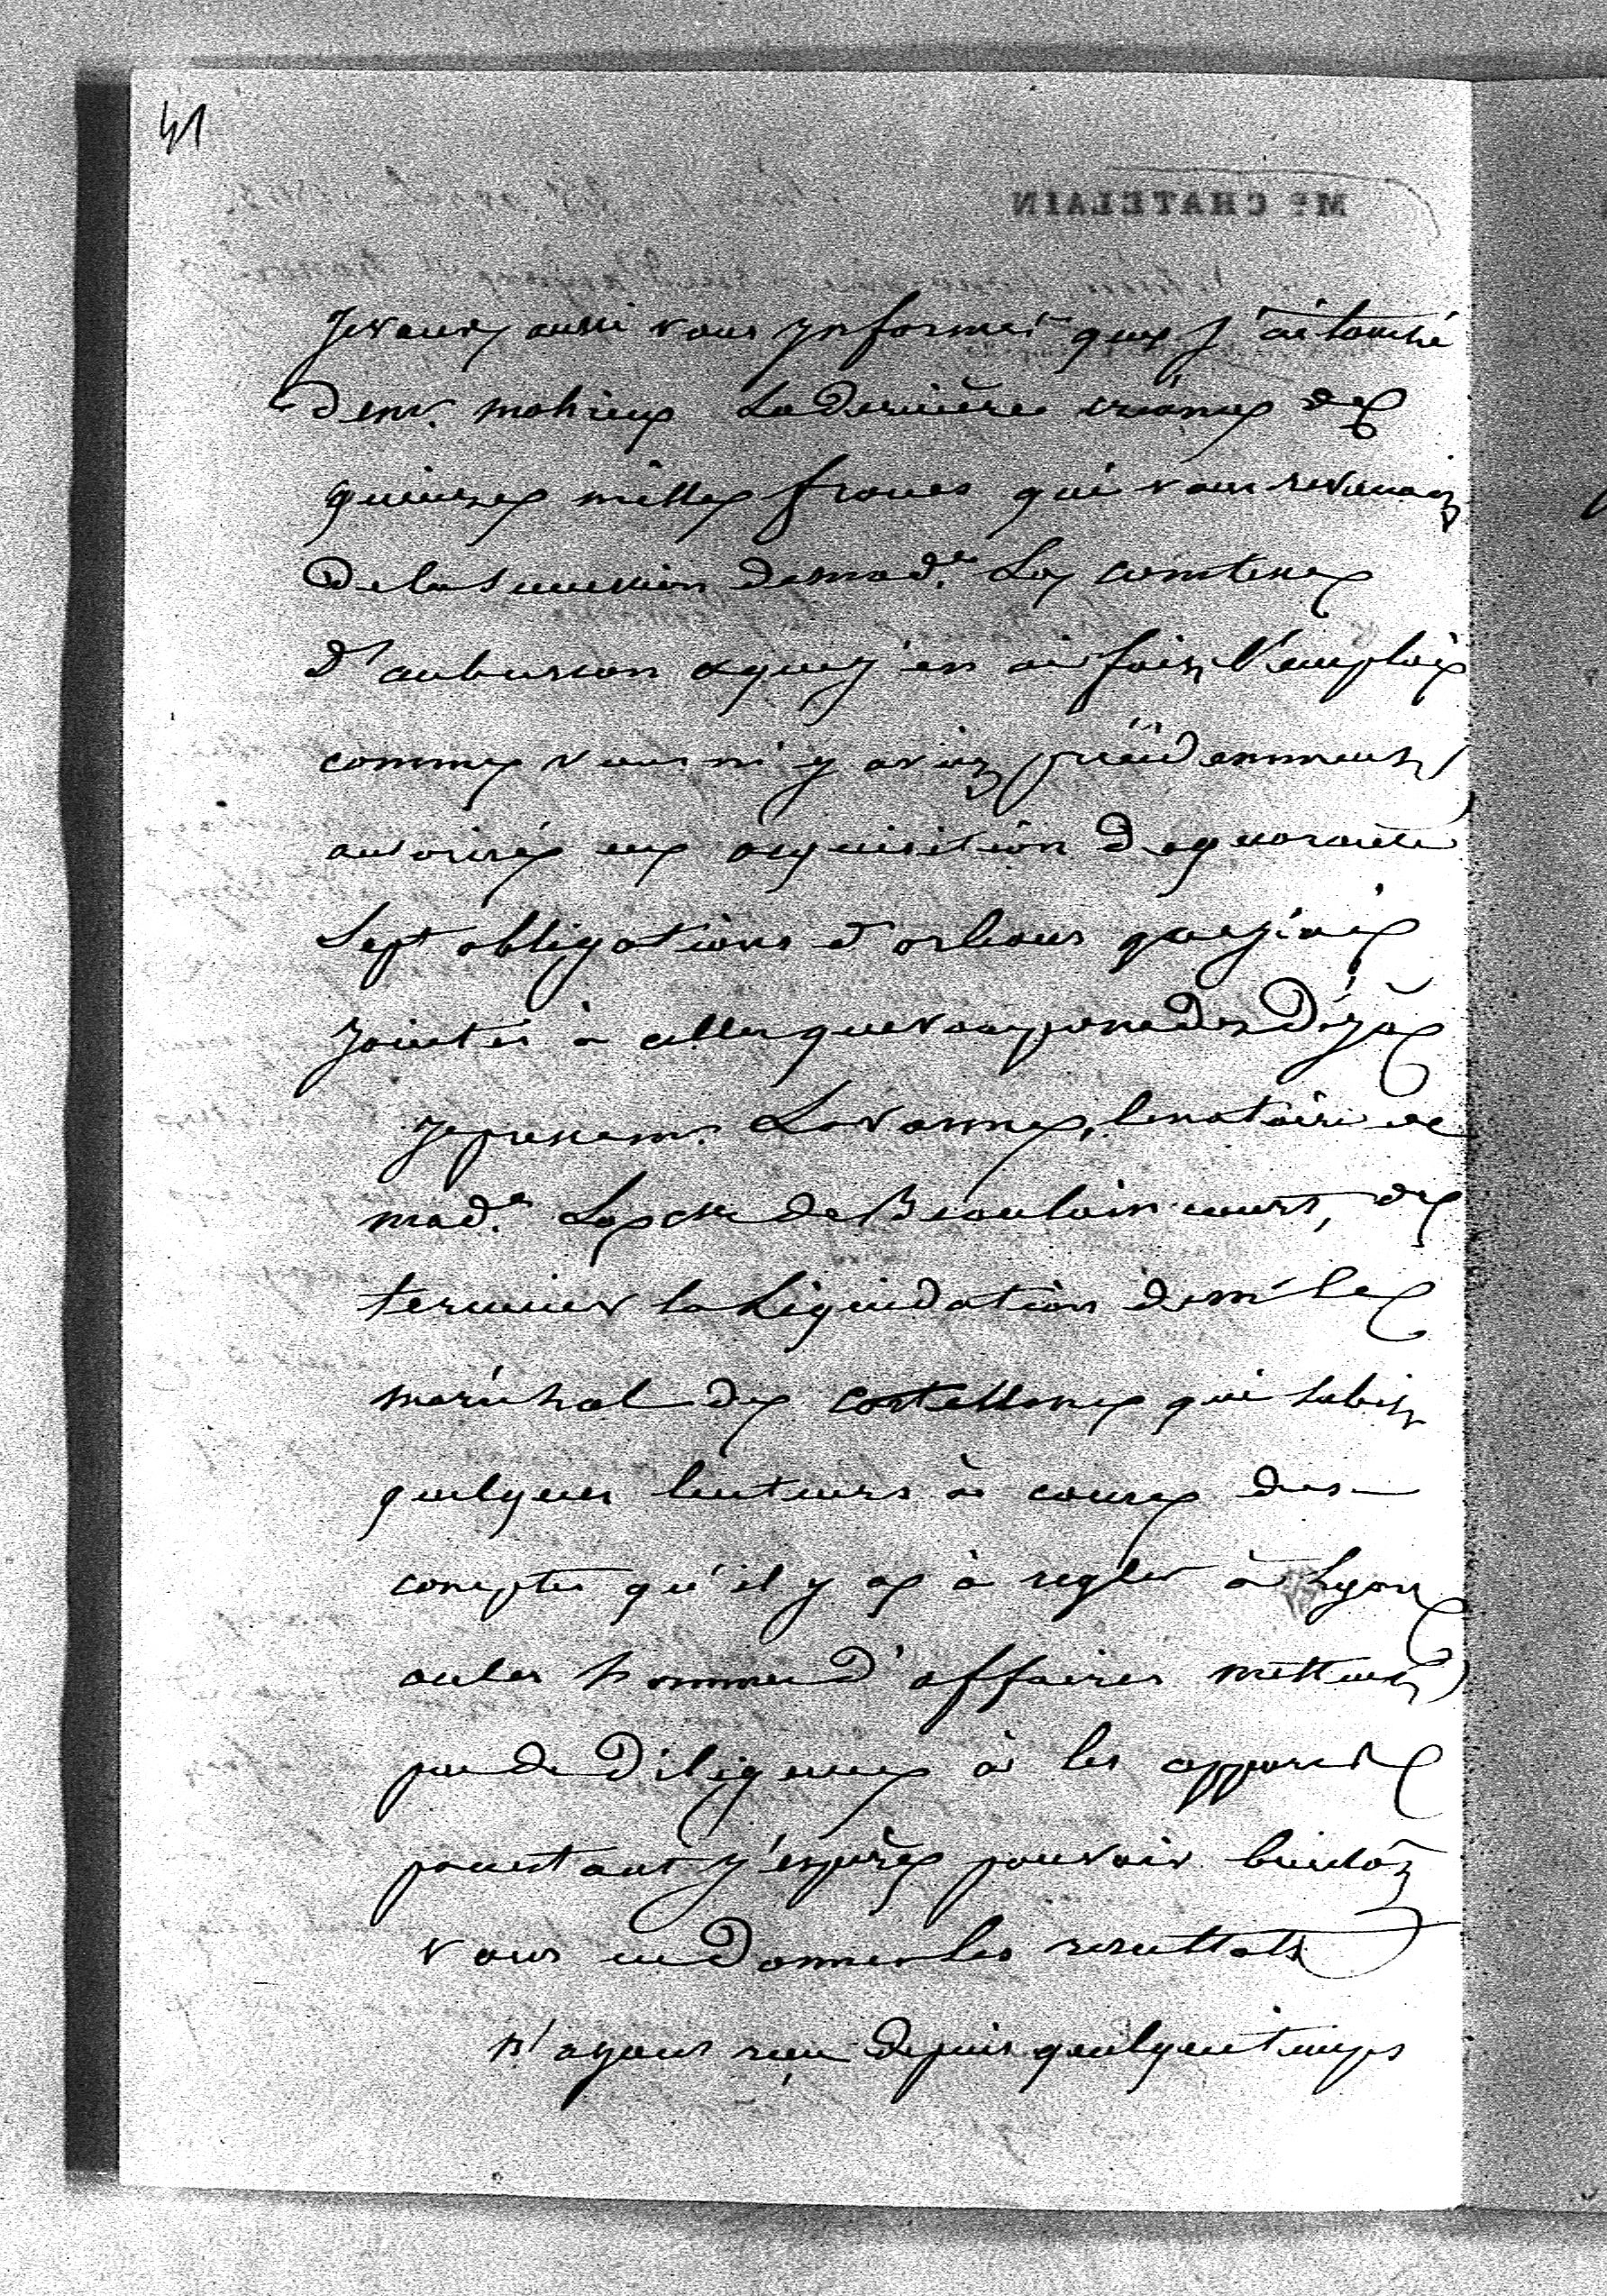 41
Mᵉ CHATELAIN
Je veux aussi vous ynformer que j'ai touché
de mr. mahieux La dernière créance de
quinze mille francs qui vous revenait
De la Succession de madᵉ. La comtesse
D'aubusson & que j'en ai fait l'emploi
comme vous m'y aviez précédemment
autorisé en acquisition de quarante
Sept obligations d'orléans que j'ai
jointes à celles que vous possedez Déja
Je presse mr. Lavanne, le notaire de
madᵉ. La Csse de Beaulaincourt, de
terminer la Liquidation de mr le
maréchal de Castellane qui subit
quelques lenteurs à cause des
comptes qu'il y a à regler à Lyon
ou les hommes d'affaires mettent
peu de Diligence à les apporter
pourtant j'espère pouvoir bientôt
vous en Donner les resultats
N'ayant rien depuis quelque temps